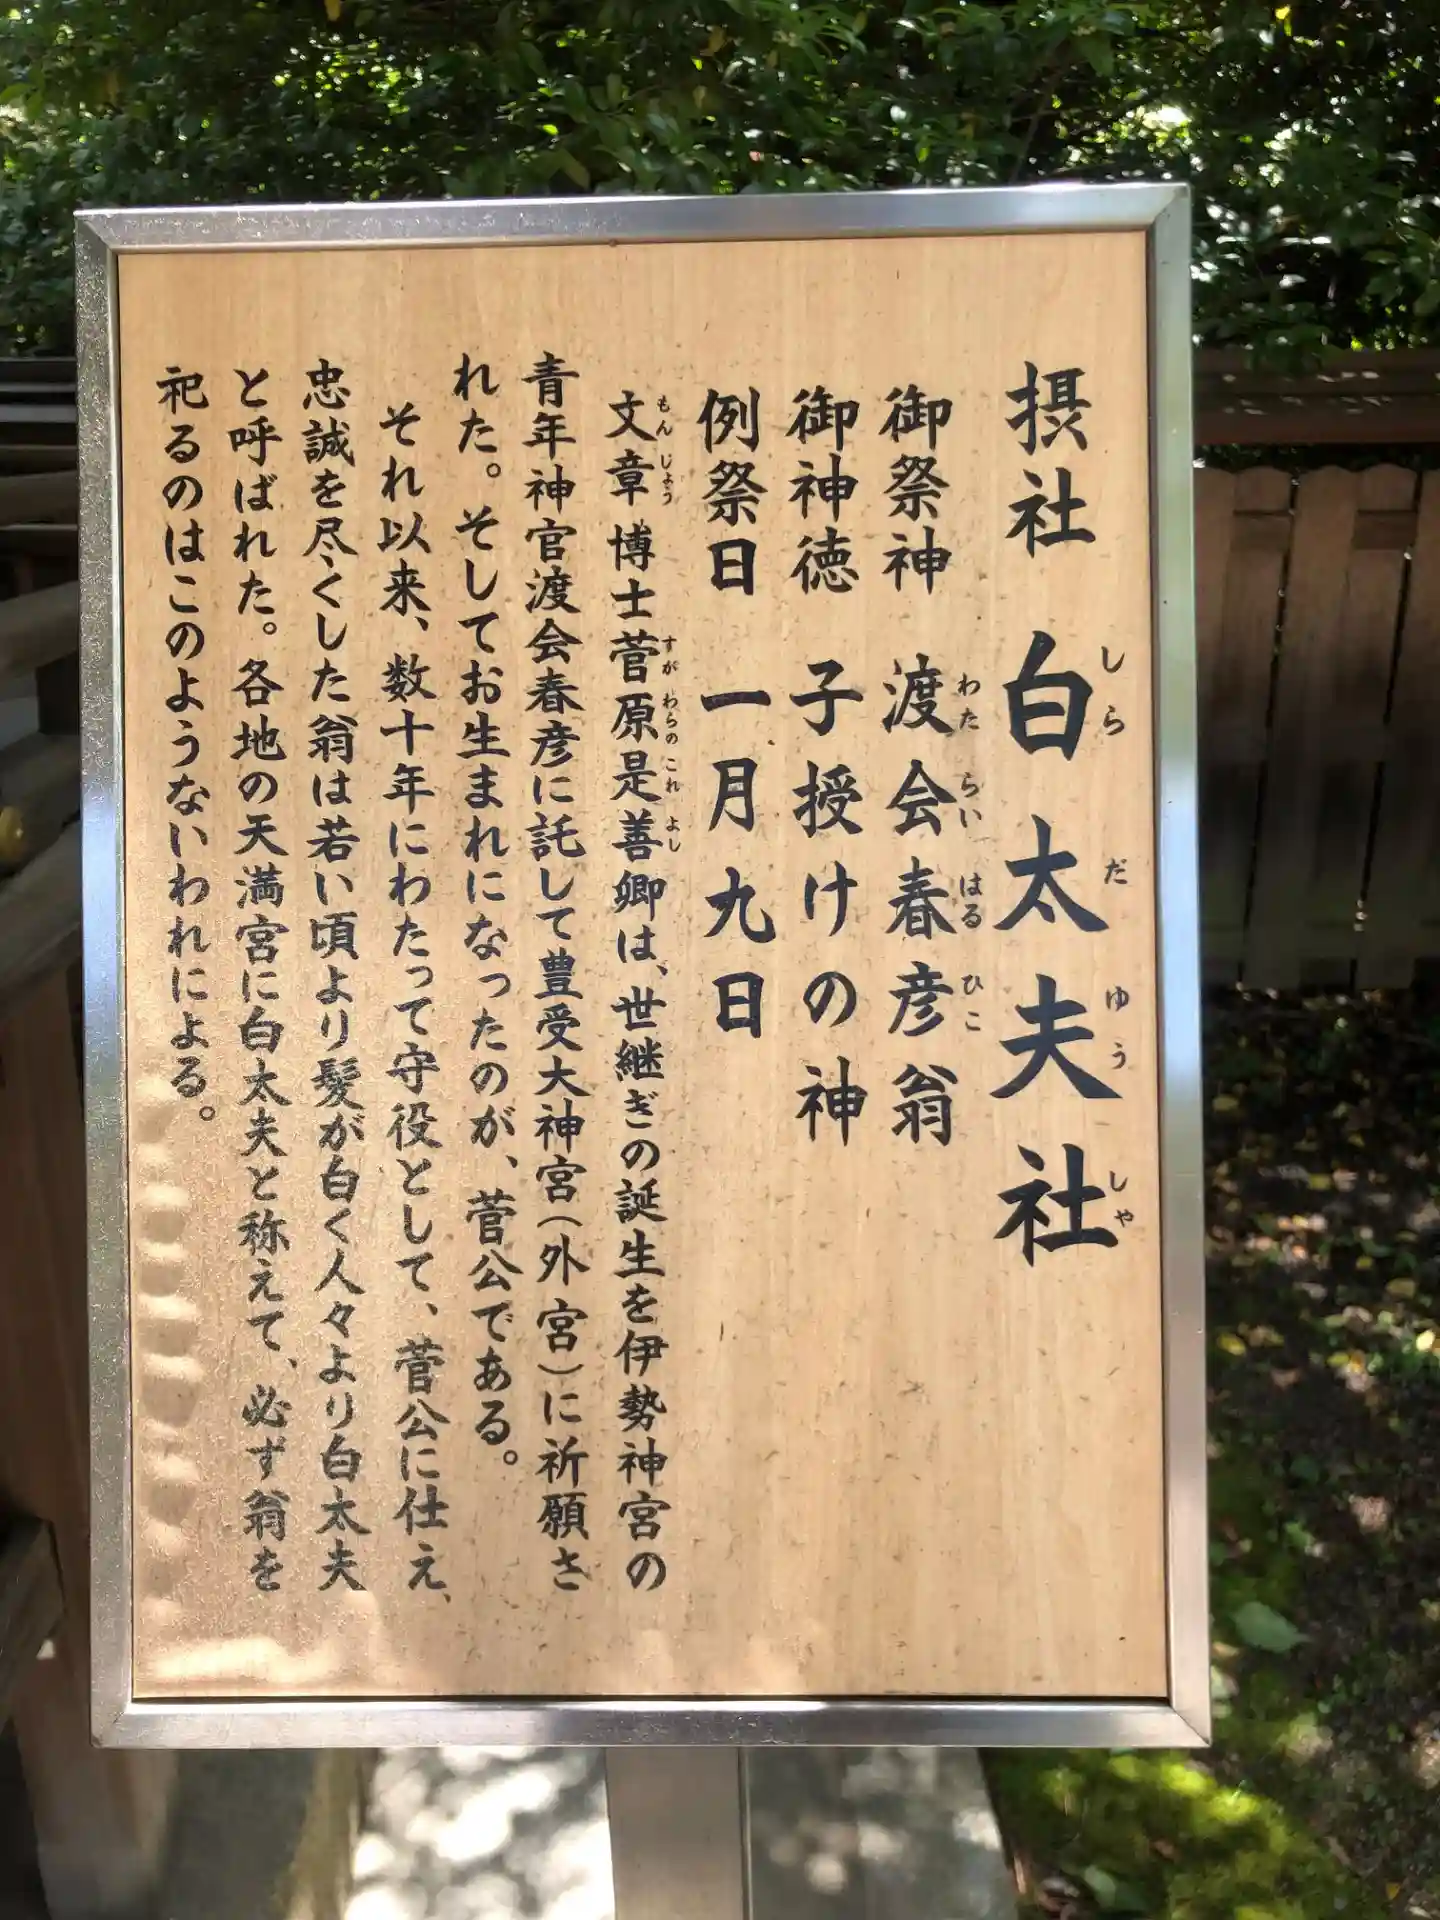 摂社 白太夫社
しらだゆうしゃ
御祭神 渡会春彦翁
わたらいはるひこ
御神徳 子授けの神
例祭日 一月九日
文章博士菅原是善卿は、世継ぎの誕生を伊勢神宮の
もんじょう すがわらの これよし
青年神官渡会春彦に託して豊受大神宮(外宮)に祈願さ
れた。そしてお生まれになったのが、菅公である。
それ以来、数十年にわたって守役として、菅公に仕え、
忠誠を尽くした翁は若い頃より髪が白く人々より白太夫
と呼ばれた。各地の天満宮に白太夫と称えて、必ず翁を
祀るのはこのようないわれによる。